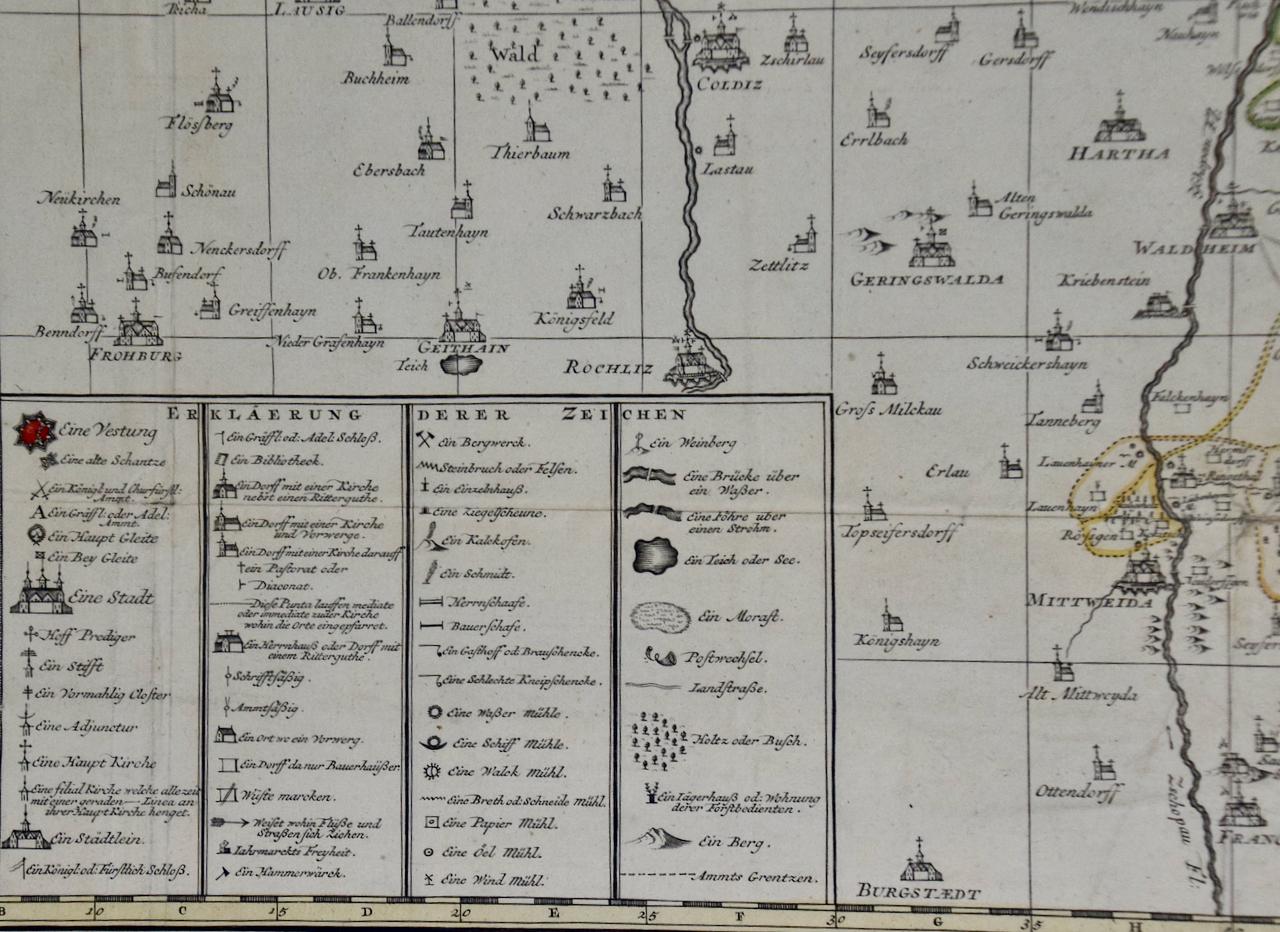 LAUSIG
Ballendorff
Wendischhayn
Neuhayn
Wald
Buchheim
Zschirlau
Seyfersdorff
Gersdorff
COLDIZ
Flösberg
Thierbaum
Errlbach
HARTHA
Ebersbach
Lastau
Schönau
Neükirchen
Schwarzbach
Alten
Geringswalda
Tautenhayn
Nenckersdorff
WALDHEIM
Zettlitz
GERINGSWALDA
Bufendorf
Ob. Frankenhayn
Kriebenstein
Greiffenhayn
Königsfeld
Benndorff
FROHBURG
Nieder Grafenhayn
GEITHAIN
Teich
ROCHLIZ
Schweickershayn
Gross Milckau
Falckenhayn
Tanneberg
Erlau
Lauenhainer M
Lauenhayn
Topseifersdorff
Rößgen
MITTWEIDA
Königshayn
Alt Mittweyda
Ottendorff
Zschopau Fl:
BURGSTÆDT
ERKLÄERUNG DERER ZEICHEN
Eine Vestung
Eine alte Schantze
Ein Königl und Churfürstl:
Ammt.
Ein Gräffl: oder Adel:
Ammt.
Ein Haupt Gleite
Ein Bey Gleite
Eine Stadt
Hoff Prediger
Ein Stifft
Ein Vormahlig Closter
Eine Adjunctur
Eine Haupt Kirche
Eine filial Kirche welche allezeit
mit einer geraden — Linea an
ihrer Haupt Kirche henget.
Ein Städtlein.
Ein Königl: od: Fürstlich Schloß.
Ein Gräffl: od: Adel: Schloß.
Ein Bibliotheck.
Ein Dorf mit einer Kirche
nebst einen Ritterguthe.
Ein Dorf mit einer Kirche
und Vorwerge.
Ein Dorf mit einer Kirche darauff
ein Pastorat oder
Diaconat.
Diese Punta lauffen mediate
oder immediate zu der Kirche
wohin die Orte eingepfarret.
Ein Herrnhauß oder Dorf mit
einem Ritterguthe.
Schrifftsäßig.
Ammtsäßig.
Ein Ort wo ein Vorwerg.
Ein Dorf da nur Bauerhäußer
Wüste marcken.
Weiset wohin Flüße und
Straßen sich Ziehen.
Jahrmarckts Freyheit.
Ein Hammerwärck.
Ein Bergwerck.
Steinbruch oder Felsen.
Ein Einzelnhauß.
Eine Ziegelscheune.
Ein Kalckofen.
Ein Schmidt.
Herrnschaafe.
Bauerschafe.
Ein Gasthoff od: Brauschencke.
Eine Schlechte Kneipschencke.
Eine Waßer Mühle.
Eine Schiff Mühle.
Eine Walck Mühl.
Eine Breth od: Schneide Mühl.
Eine Papier Mühl.
Eine Oel Mühl.
Eine Wind Mühl.
Ein Weinberg
Eine Brücke über
ein Waßer.
Eine Föhre über
einen Strohm.
Ein Teich oder See.
Ein Morast.
Postwechsel.
Landstraße.
Holtz oder Busch.
Ein Jägerhauß od: Wohnung
derer Forstbedienten.
Ein Berg.
Ammts Grentzen.
B 10 C 15 D 20 E 25 F 30 G 35 H